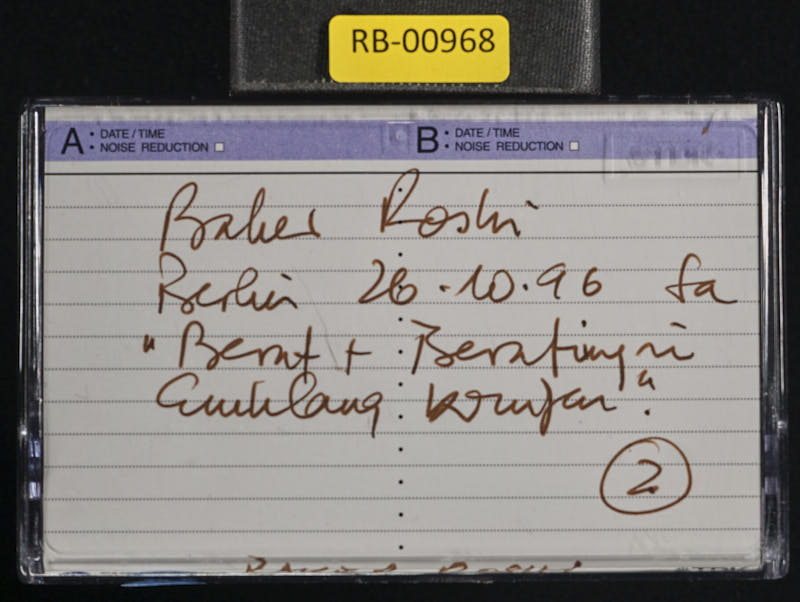 RB-00968
A: DATE / TIME
NOISE REDUCTION
B: DATE / TIME
NOISE REDUCTION
Baker Roshi
Berlin 26.10.96 Sa
"Beruf + Berufung in
Einklang
②
BAKER ROSHI
TDK